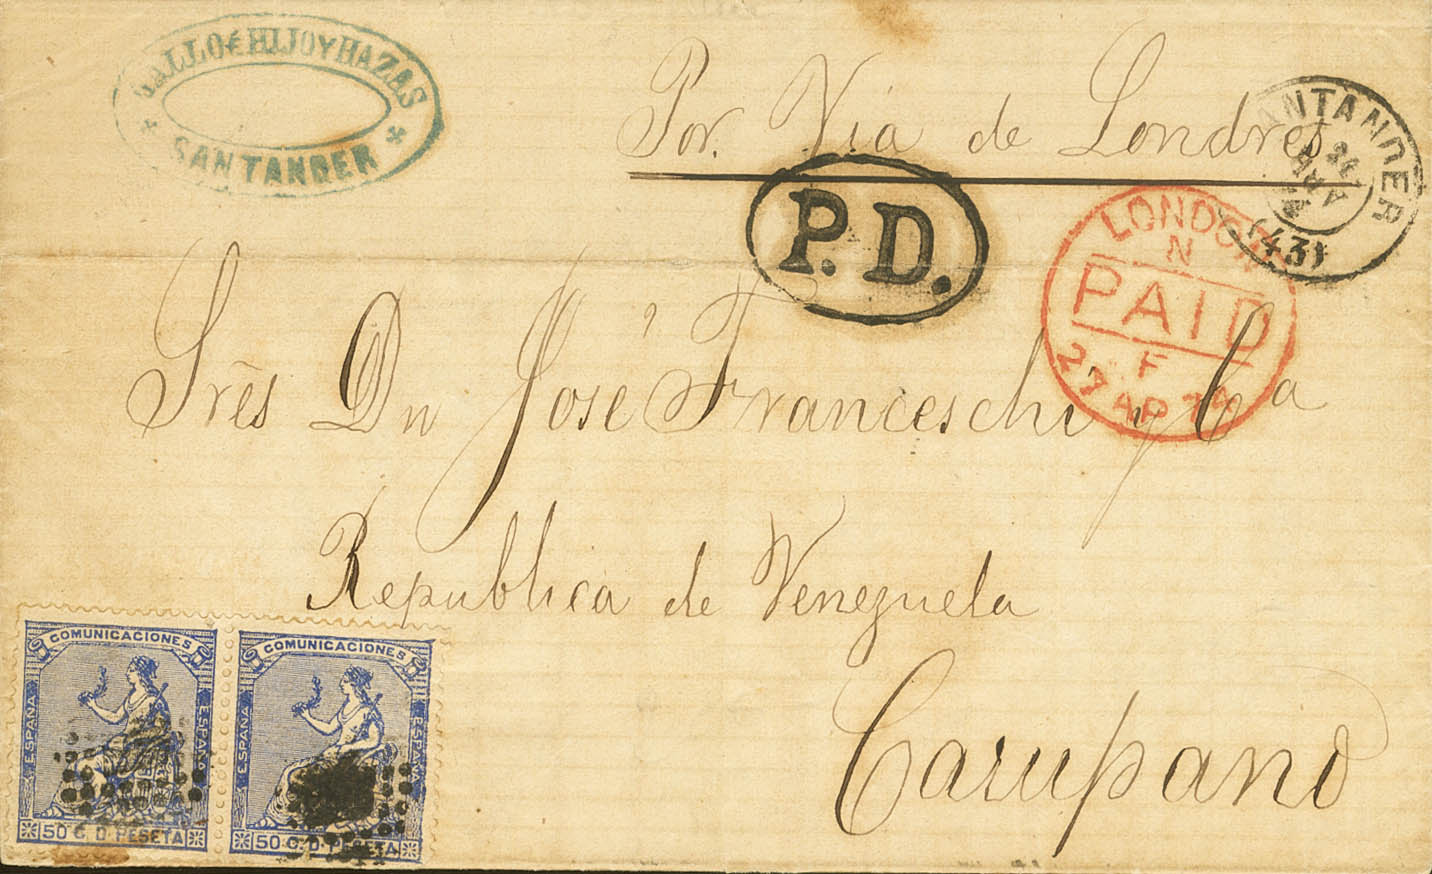 GALLO É HIJO Y HAZAS
SANTANDER
Por Via de Londres
SANTANDER
ABR
(43)
P.D.
LONDON
N
PAID
F
27 AP 74
Srês Dn José Franceschi y Ca
Republica de Venezuela
Carupano
COMUNICACIONES
ESPAÑA
ESPAÑA
50 C. D. PESETA
COMUNICACIONES
ESPAÑA
ESPAÑA
50 C. D. PESETA